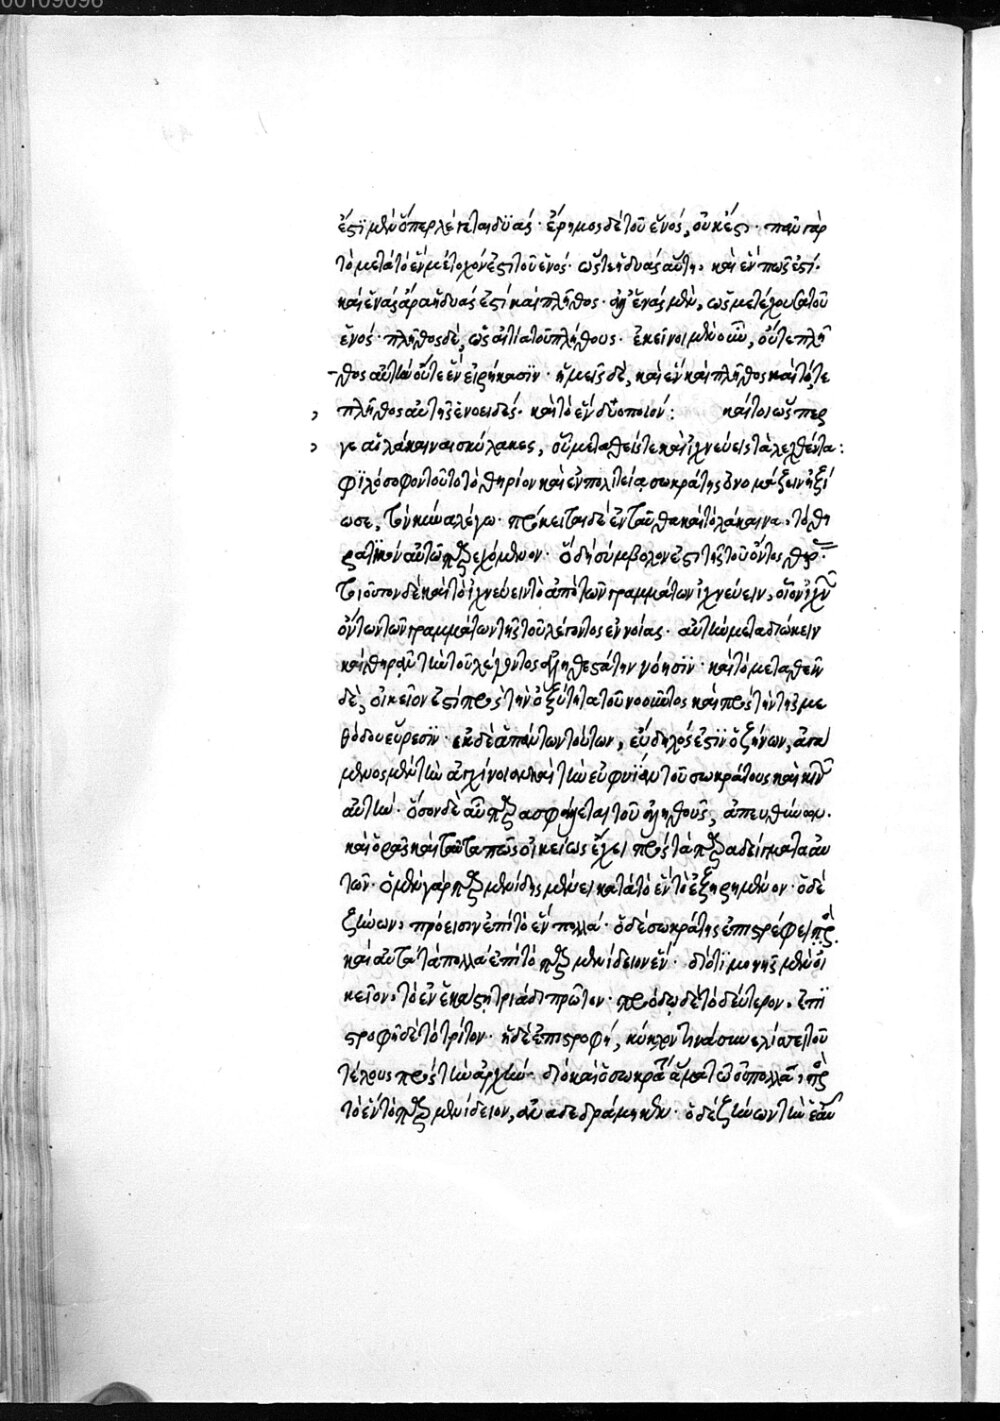 00109098
ἐςὶ μὲν ὅπερ λέγεται δυάς· ἔρημος δὲ τοῦ ἑνός, οὐκ ἔςι· πᾶν γὰρ
τὸ μετὰ τὸ ἓν μέτοχόν ἐςι τοῦ ἑνός· ὥςτε ἡ δυὰς αὕτη, καὶ ἕν πως ἐςί·
καὶ ἑνὰς ἄρα ἡ δυάς ἐςι καὶ πλῆθος· ἀλλ' ἑνὰς μὲν, ὡς μετέχουσα τοῦ
ἑνός· πλῆθος δὲ, ὡς αἰτία τοῦ πλήθους· ἐκεῖνοι μὲν οὖν, οὔτε πλῆ
θος αὐτὴν οὔτε ἓν εἰρήκασιν· ἡμεῖς δὲ, καὶ ἓν καὶ πλῆθος καὶ τό τε
πλῆθος αὐτῆς ἑνοειδές· καὶ τὸ ἓν δυοποιόν: καίτοι ὥσπερ
γε αἱ λάκαιναι σκύλακες, εὖ μεταθεῖς τε καὶ ἰχνεύεις τὰ λεχθέντα:
φιλόσοφον τοῦτο τὸ θηρίον καὶ ἐν πολιτείᾳ σωκράτης ὀνομάζειν ἠξί
ωσε, τὸν κύνα λέγω· πρόκειται δὲ ἐνταῦθα καὶ τὸ λάκαινα, τὸ θη
ρατικὸν αὐτῷ παρεχόμενον· ὃ δὴ σύμβολόν ἐςι τῆς τοῦ ὄντος θήρας·
τοιοῦτον δὲ καὶ τὸ ἰχνεύειν τὸ ἀπὸ τῶν γραμμάτων ἰχνεύειν, οἷον ἰχνῶν
ὄντων τῶν γραμμάτων τῆς τοῦ λέγοντος ἐννοίας· αὐτὴν μεταδιώκειν
καὶ θηρᾶν τὴν τοῦ λέγοντος ἀληθεςάτην νόησιν· καὶ τὸ μεταθεῖν
δὲ, οἰκεῖόν ἐςι πρὸς τὴν ὀξύτητα τοῦ νοοῦντος καὶ πρὸς τὴν τῆς με
θόδου εὕρεσιν· ἐκ δὲ ἁπάντων τούτων, εὔδηλός ἐςιν ὁ ζήνων, ἀγά
μενος μὲν τὴν ἀγχίνοιαν καὶ τὴν εὐφυΐαν τοῦ σωκράτους καὶ κινῶν
αὐτήν· ὅσον δὲ αὖ παρασφάλλεται τοῦ ἀληθοῦς, ἀπευθύνων·
καὶ ὁρᾷς καὶ ταῦτα πῶς οἰκείως ἔχει πρὸς τὰ παραδείγματα αὐ
τῶν· ὁ μὲν γὰρ παρμενίδης μένει κατὰ τὸ ἓν τὸ ἐξῃρημένον· ὁ δὲ
ζήνων, πρόεισιν ἐπὶ τὸ ἓν πολλά· ὁ δὲ σωκράτης ἐπιςρέφει πρὸς
καὶ αὐτὰ τὰ πολλὰ ἐπὶ τὸ παρμενίδειον ἕν· διότι μονῆς μὲν οἰ
κεῖον, τὸ ἐν ἑκάςῃ τριάδι πρῶτον· προόδῳ δὲ τὸ δεύτερον, ἐπι
ςροφῇ δὲ τὸ τρίτον· ἡ δὲ ἐπιςροφή, κύκλόν τινα συνελίττει τοῦ
τέλους πρὸς τὴν ἀρχήν· διὸ καὶ ὁ σωκράτης ἅμα τῷ οὐ πολλά, πρὸς
τὸ ἓν τὸ παρμενίδειον, ἀναδεδράμηκεν· ὁ δὲ ζήνων τὴν ἑαυ